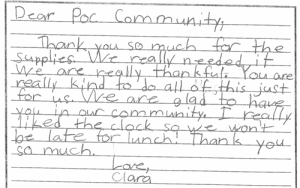 Dear Poc Community,
Thank you so much for the
supplies. We really needed it
We are really thankful. You are
really kind to do all of this just
for us. We are glad to have
you in our community. I really
liked the clock so we won't
be late for lunch! Thank you
so much.
Love,
Clara